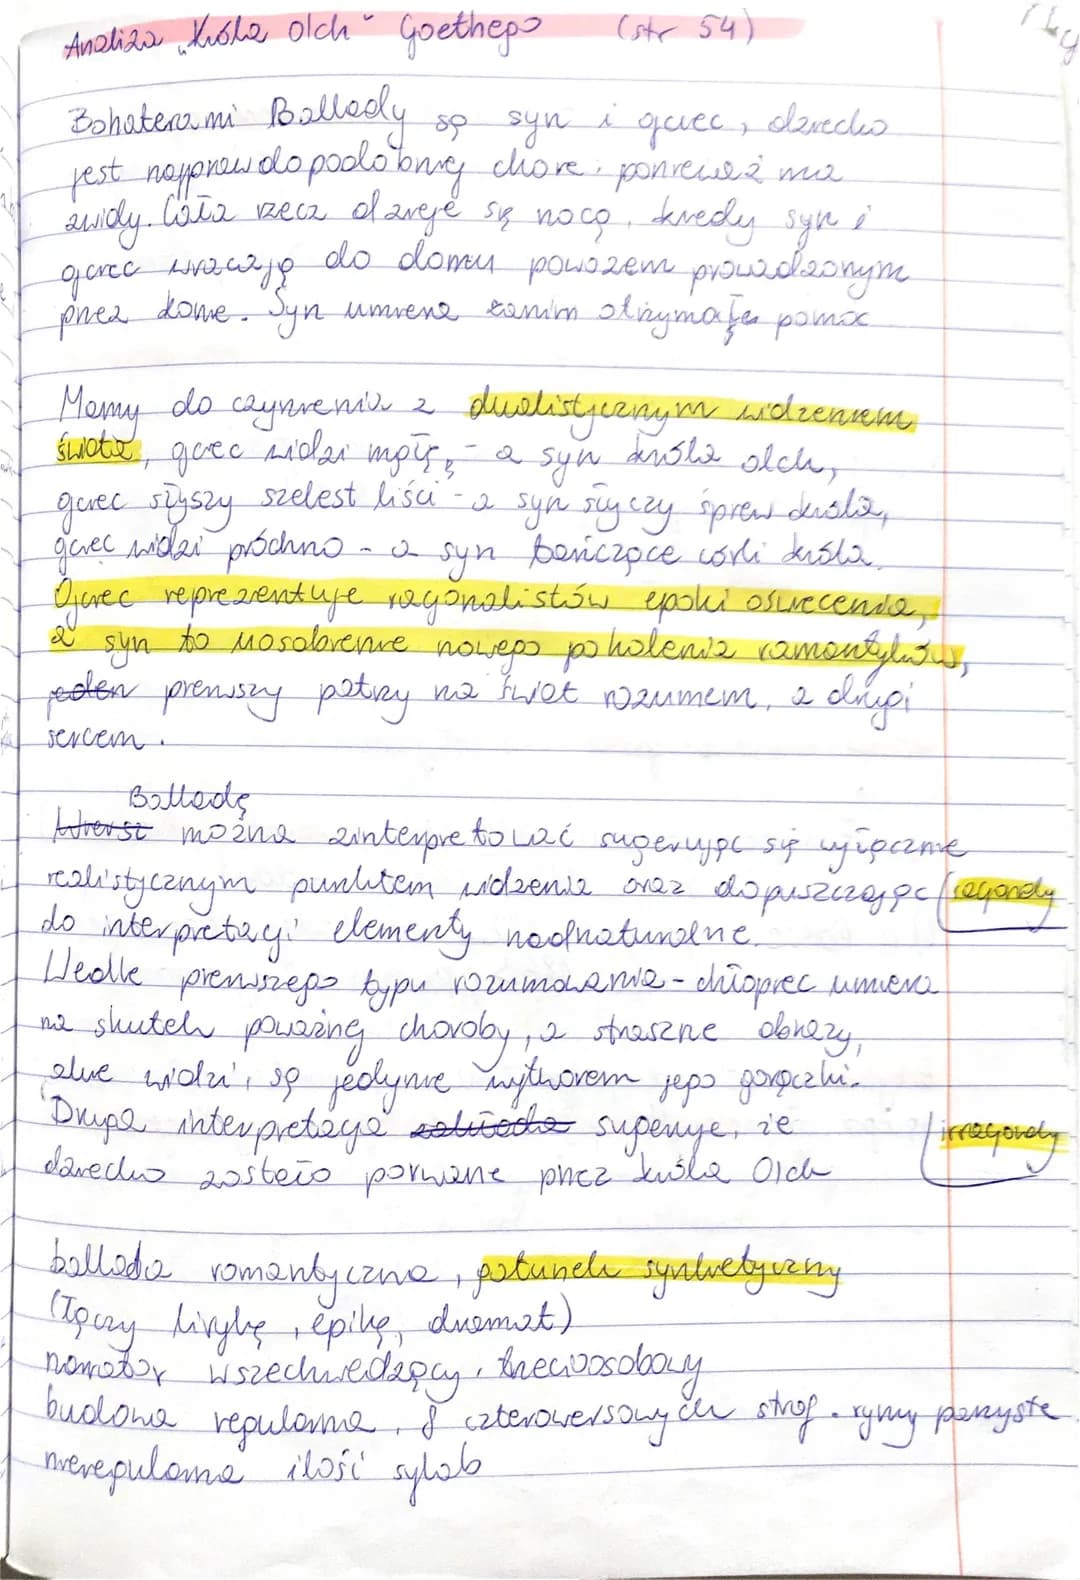 Analiza „Króla Olch" Goethego (str 54)
Bohaterami Ballady są syn i ojciec, dziecko
jest najprawdopodobniej chore, ponieważ ma
zwidy. Cała rzecz dzieje się nocą, kiedy syn i
ojciec wracają do domu powozem prowadzonym
przez konie. Syn umiera zanim otrzymałe pomoc
Mamy do czynienia z dualistycznym widzeniem
świata, ojciec widzi mgłę, - a syn króla olch,
ojciec słyszy szelest liści - a syn słyczy śpiew króla,
ojciec widzi próchno - a syn tańczące córki króla.
Ojciec reprezentuje racjonalistów epoki oświecenia,
a syn to uosobienie nowego pokolenia romantyków,
jeden pierwszy patrzy na świat rozumem, a drugi
sercem.
Balladę
Wiersz można zinterpretować sugerując się wyłącznie
realistycznym punktem widzenia oraz dopuszczając racjonalny
do interpretacji elementy nadnaturalne.
Wedle pierwszego typu rozumowania - chłopiec umiera
na skutek poważnej choroby, a straszne obrazy,
które widzi, są jedynie wytworem jego gorączki.
Druga interpretacja sugeruje, że
dziecko zostało porwane przez króla Olch
ballada romantyczna, gatunek synkretyczny
(łączy lirykę, epikę, dramat)
narrator wszechwiedzący, trzecioosobowy
budowa regularna, 8 czterowersowych strof. rymy parzyste
nieregularna ilość sylab